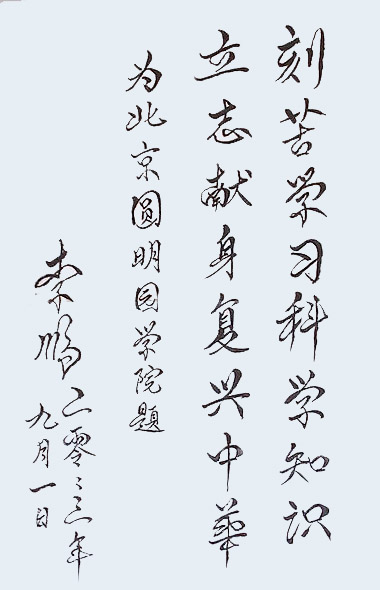 刻苦学习科学知识
立志献身复兴中华
为北京圆明园学院题
李鹏
二零零三年
九月一日